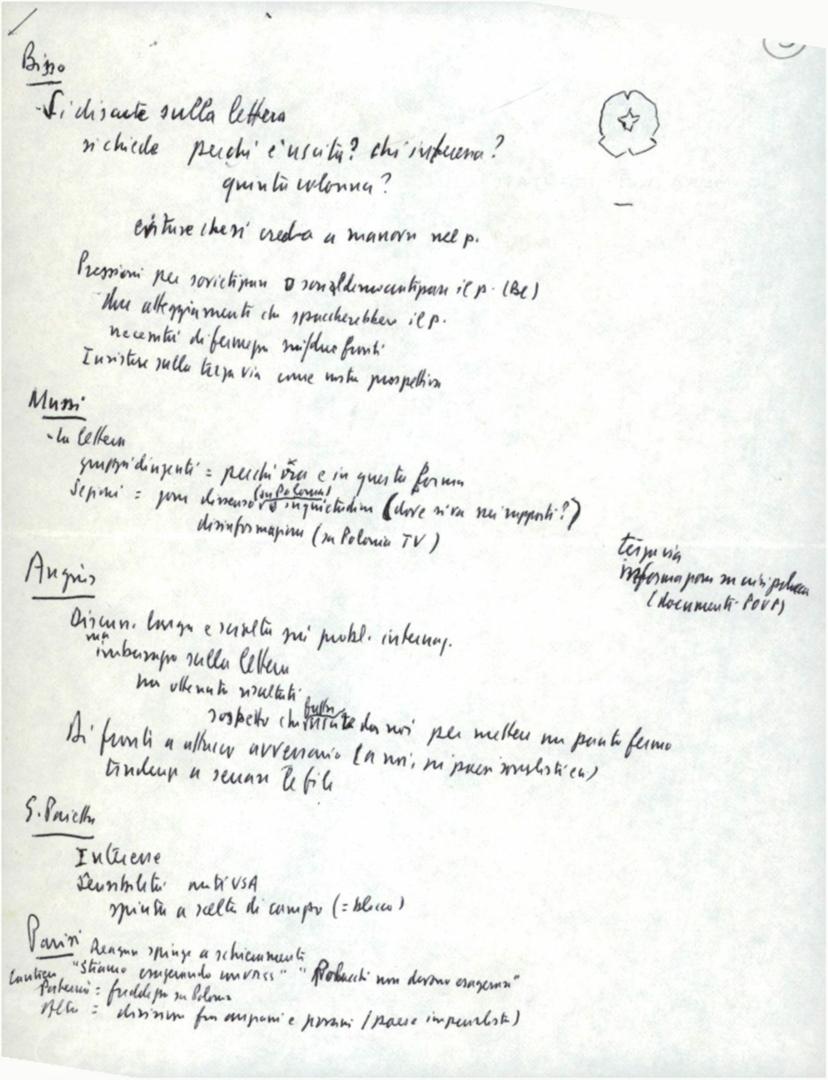 Bisso
- Si discute sulla lettera
si chiede perché è uscita? chi interessa?
quinta colonna?
evitare che si creda a manovre nel p.
Pressioni per sovietizzare o socialdemocratizzare il p. (Be)
due atteggiamenti che spaccherebbero il p.
necessità di fermezza sui due fronti
Insistere sulla terza via come nostra prospettiva
Mussi
- la lettera
gruppi dirigenti = perché ora e in questa forma
Sezioni = dissenso (su Polonia) inquietudine (dove si va nei rapporti?)
disinformazione (su Polonia TV)
terza via
informazione su crisi polacca
(documenti POUP)
Angius
Discuss. lunga e sciolta sui probl. internaz.
ma
imbarazzo sulla lettera
ha ottenuto risultati
sospetto che da noi per mettere un punto fermo
Di fronte a attacco avversario (a noi, ai paesi socialistici)
tendenza a serrare le fila
G. Pajetta
Interesse
Sensibilità anti USA
spinta a scelta di campo (= blocco)
Parisi Reagan spinge a schieramenti
Cantieri "Stiamo esagerando" "Polacchi non devono esagerare"
= freddezza su Polonia
= discussione fra (paese imperialista)